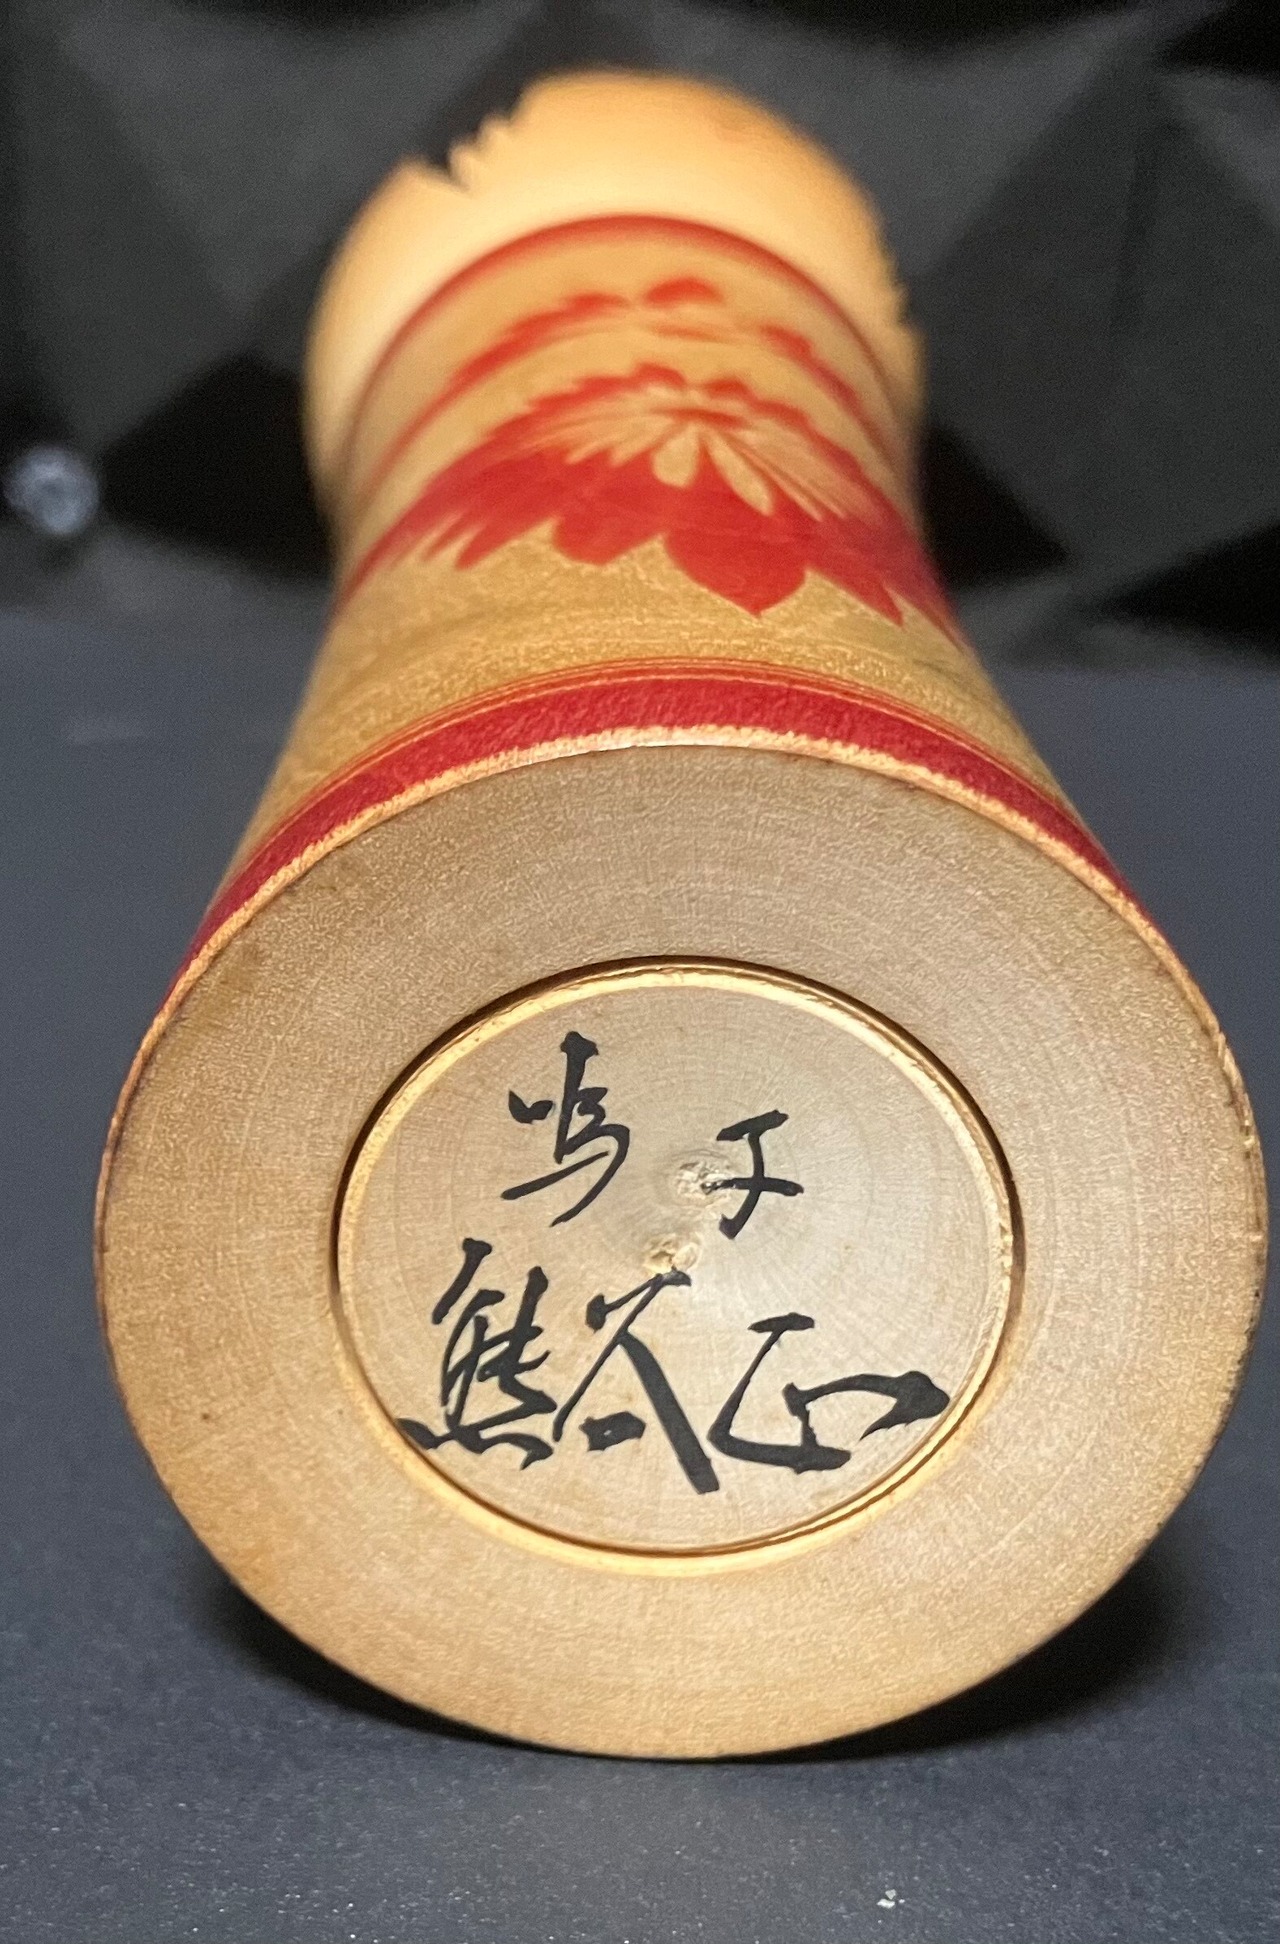 鳴子
熊谷正